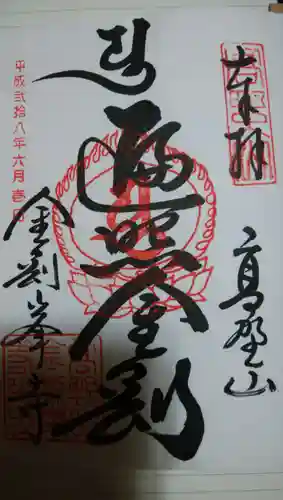 奉拝
高野山
南無
遍照金剛
金剛峯寺
平成弐拾八年六月壱日